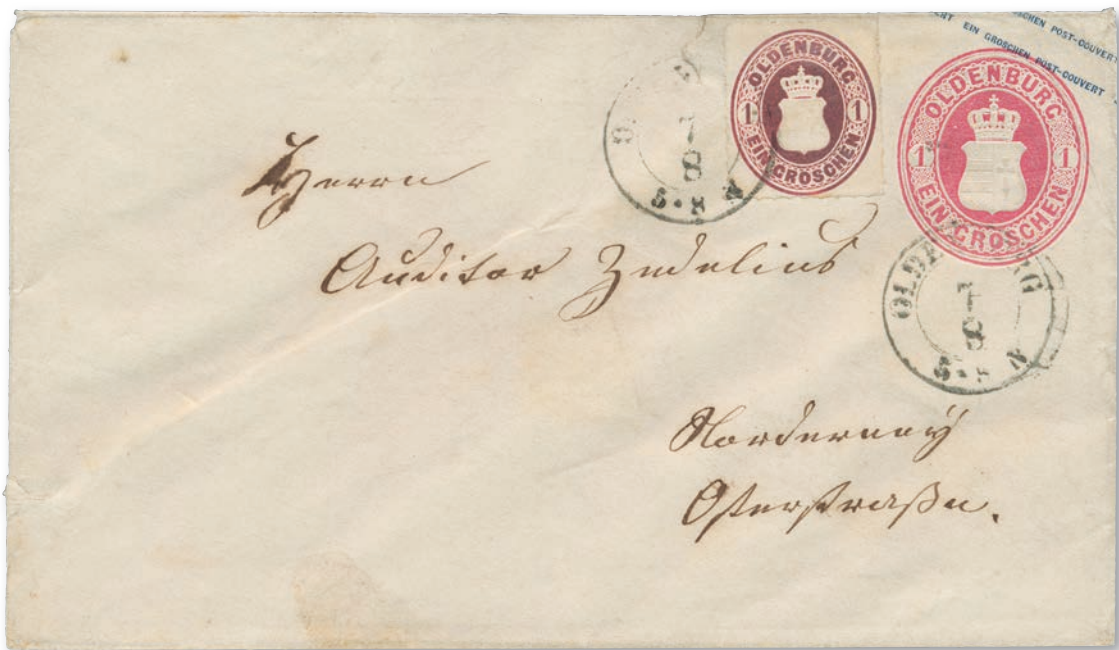 EIN GROSCHEN POST-COUVERT
EIN GROSCHEN POST-COUVERT
OLDENBURG
1 1
EIN GROSCHEN
OLDENBURG
1 1
EIN GROSCHEN
7
8
5-8 N
OLDENBURG
7
8
5-8 N
Herrn
Auditor Zedelius
Norderney
Osterstraße.